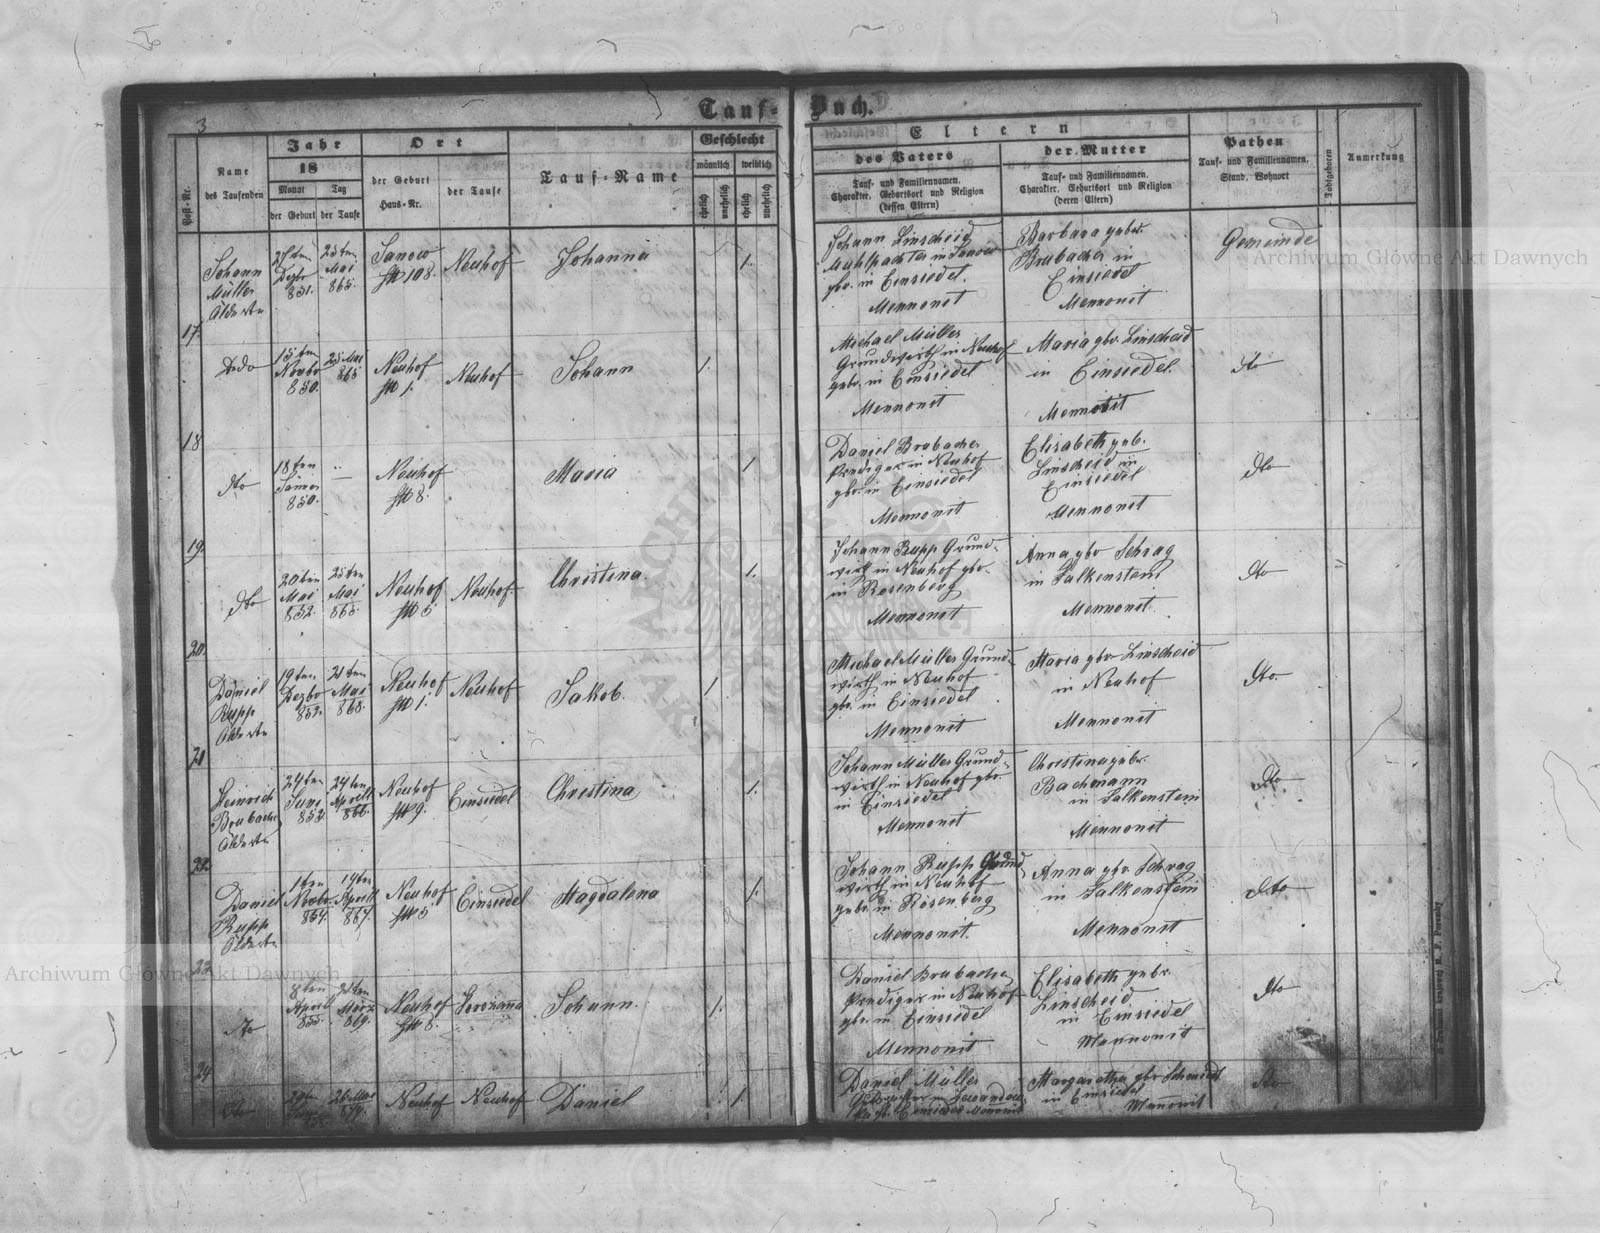 3
Tauf-Buch.
Post-Nr.
Name
des Taufenden
Jahr
18
Monat
Tag
der Geburt
der Taufe
Ort
der Geburt
Haus-Nr.
der Taufe
Tauf-Name
Geschlecht
männlich
weiblich
ehelich
unehelich
ehelich
unehelich
Eltern
des Vaters
Tauf- und Familiennamen.
Charakter, Geburtsort und Religion
(dessen Eltern)
der Mutter
Tauf- und Familiennamen.
Charakter, Geburtsort und Religion
(deren Eltern)
Pathen
Tauf- und Familiennamen.
Stand, Wohnort
Anmerkung
Johann
Müller
Dezbr
851.
25ten
Mai
865.
Janow
№ 108.
Neuhof
Johanna
1.
Johann Linscheid
gbr. in Einsiedel.
Mennonit
Barbara gebr.
Brubacher in
Einsiedel
Mennonit
Gemeinde
17.
15ten
Novbr
850.
25 Mai
865
Neuhof
№ 1.
Neuhof
Johann
1.
Michael Müller
Grundwirth in Neuhof
gebr. in Einsiedel
Mennonit
Maria gbr. Linscheid
in Einsiedel.
Mennonit
dto
18
dto
18ten
Jänner
850.
Neuhof
№ 8.
Maria
1
Daniel Brubacher
Prediger in Neuhof
gbr. in Einsiedel
Mennonit
Elisabeth geb.
Linscheid in
Einsiedel
Mennonit
dto
19.
dto
20ten
Mai
852.
25ten
Mai
865.
Neuhof
№ 5
Neuhof.
Christina.
1.
Johann Rupp Grund-
wirth in Neuhof gbr.
in Rosenberg
Mennonit
Anna gbr Schrag
in Falkenstein
Mennonit.
dto
20.
Daniel
Rupp
19ten
Dezbr
Mai
Neuhof
№ 1.
Neuhof
Jakob.
1
Michael Müller Grund-
wirth in Neuhof
gbr. in Einsiedel
Mennonit
Maria gbr Linscheid
in Neuhof
Mennonit
dto.
21
Heinrich
Brubacher
24ten
Juni
24ten
Aprill
866.
Neuhof
№ 9.
Einsiedel
Christina
1.
Johann Müller Grund-
wirth in Neuhof gbr.
in Einsiedel
Mennonit
Christina gebr.
Bachmann
in Falkenstein
Mennonit
dto
22.
Daniel
Rupp
1ten
Novbr
854.
19ten
Aprill
867.
Neuhof
№ 5
Einsiedel
Magdalena
1.
Johann Rupp Grund
wirth in Neuhof
gebr. in Rosenberg
Mennonit.
Anna gbr. Schrag
in Falkenstein
Mennonit
dto
23.
dto
8ten
Aprill
855.
März
869.
Neuhof
№ 8.
Johann.
1.
Daniel Brubacher
Prediger in Neuhof
gbr. in Einsiedel
Mennonit
Elisabeth gebr.
Linscheid
in Einsiedel
Mennonit
dto
24
dto
Neuhof
Neuhof
Daniel
1.
Daniel Müller
Margaretha gbr Schmidt
in Einsiedel
Mennonit
dto
Archiwum Główne Akt Dawnych
Archiwum Główne Akt Dawnych